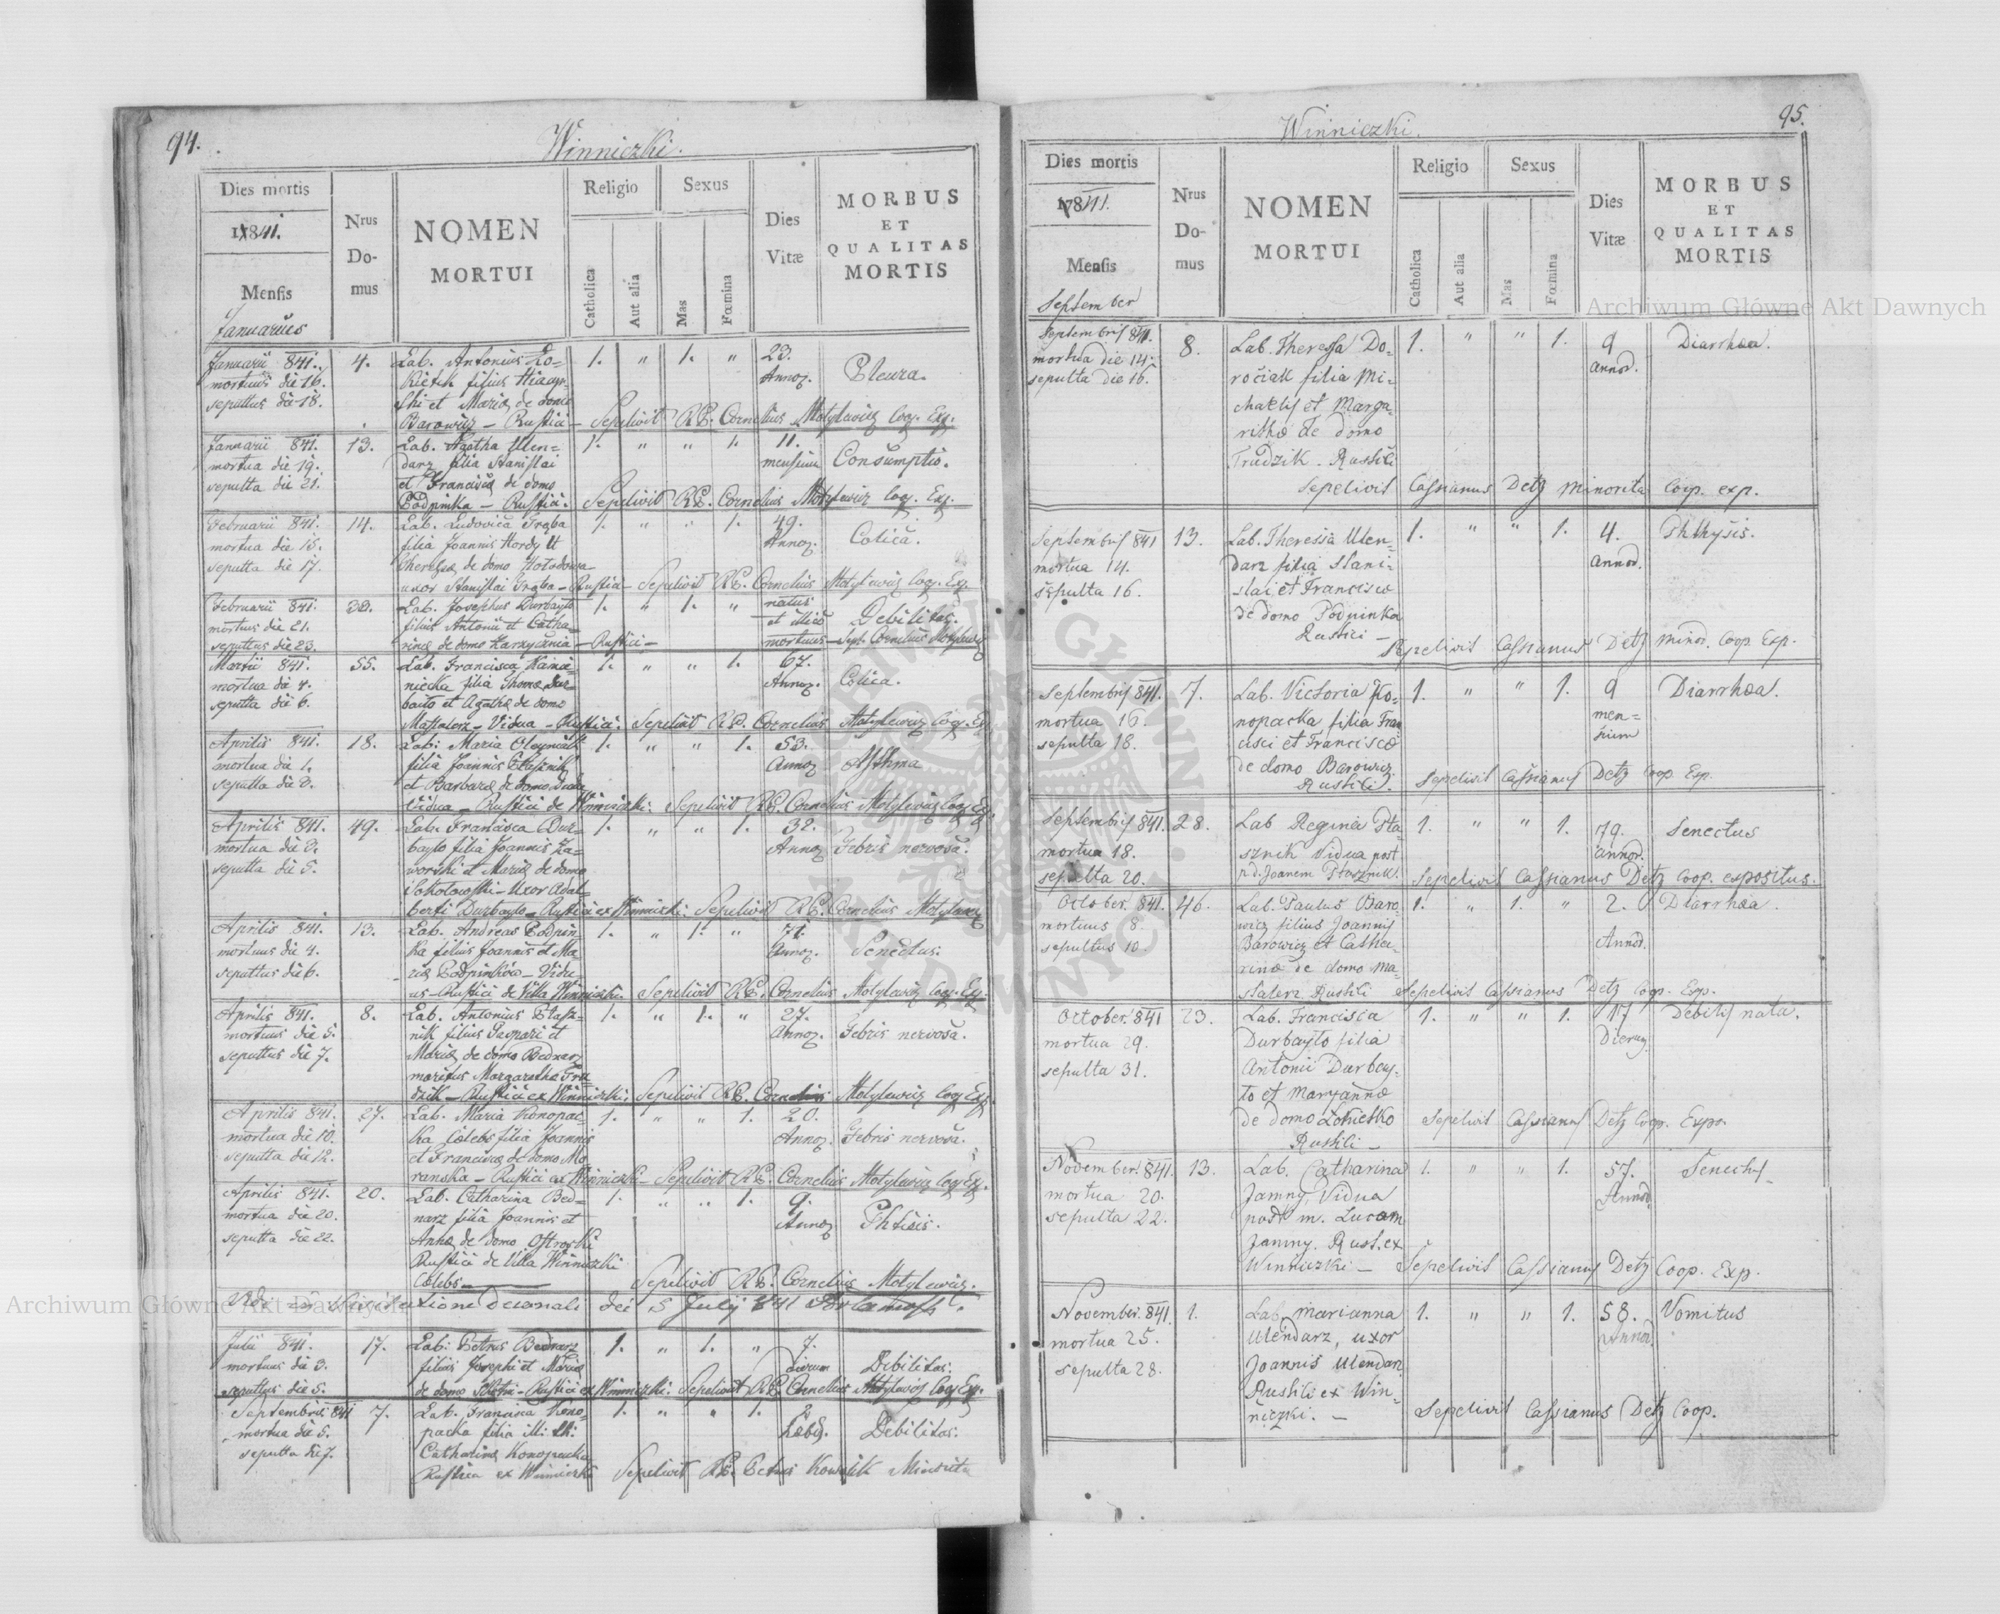 94.
Winniczki.
Dies mortis
1841.
Mensis
Januarius
Nrus
Do-
mus
NOMEN
MORTUI
Religio
Catholica
Aut alia
Sexus
Mas
Fœmina
Dies
Vitæ
MORBUS
ET
QUALITAS
MORTIS
Januarii 841. 4. Lab. Antonius 1. " 1. " 23.
mortuus die 16. filius Annoꝝ. Pleura.
sepultus die 18. et Mariæ de domo
Barowicz – Rustici – Sepelivit R.P. Cornelius Motylewicz Coop. Exp.
Januarii 841. 13. Lab. Agatha Ulen- 1. " " 1. 11.
mortua die 19. darz filia Stanislai mensium Consumptio.
sepulta die 21. et Franciscæ de domo
Podpinka – Rustici. Sepelivit R.P. Cornelius Motylewicz Coop. Exp.
Februarii 841. 14. Lab. Ludovica Traba 1. " " 1. 49.
mortua die 15. filia Joannis Hordy et Annoꝝ. Colica.
sepulta die 17. de domo
uxor Stanislai Traba – Rustici – Sepelivit R.P. Cornelius Motylewicz Coop. Exp.
Februarii 841. Lab. Josephus Durbayło 1. " 1. " natus
mortuus die 21. filius Antonii et Catha- et illico Debilitas.
sepultus die 23. rinæ de domo – Rustici – mortuus – Sepl. Cornelius Motylewicz
Martii 841. 55. Lab. Francisca 1. " " 1. 67.
mortua die 4. filia Thomæ Dur- Annoꝝ. Colica.
sepulta die 6. bayło et Agathæ de domo
Masталerz – Vidua – Rustici. Sepelivit R.P. Cornelius Motylewicz Coop. Ex.
Aprilis 841. 18. Lab. Maria 1. " " 1. 53.
mortua die 1. filia Joannis Annoꝝ Asthma
sepulta die 3. et Barbaræ de domo
vidua – Rustici de Winniczki. Sepelivit R.P. Cornelius Motylewicz Coop. Ex.
Aprilis 841. 49. Lab. Francisca Dur- 1. " " 1. 32.
mortua die 3. bayło filia Joannis Za- Annoꝝ Febris nervosa.
sepulta die 5. worski et Mariæ de domo
Sokołowski – Uxor Adal-
berti Durbayło – Rustici ex Winniczki. Sepelivit R.P. Cornelius Motylewicz
Aprilis 841. 13. Lab. Andreas Podpin- 1. " 1. " 71.
mortuus die 4. ka filius Joannis et Ma- Annoꝝ. Senectus.
sepultus die 6. riæ Podpinkow – Vidu-
us – Rustici de Villa Winniczki. Sepelivit R.P. Cornelius Motylewicz Coop. Ex.
Aprilis 841. 8. Lab. Antonius Stasz- 1. " 1. " 27.
mortuus die 5. nik filius Gaspari et Annoꝝ. Febris nervosa.
sepultus die 7. Mariæ de domo Bednarz
maritus Margarethæ Tru-
dzik – Rustici ex Winniczki. Sepelivit R.P. Cornelius Motylewicz Coop. Ex.
Aprilis 841. 27. Lab. Maria Konopac- 1. " " 1. 20.
mortua die 10. ka Cælebs filia Joannis Annoꝝ. Febris nervosa.
sepulta die 12. et Franciscæ de domo Mo-
ranska – Rustici ex Winniczki – Sepelivit R.P. Cornelius Motylewicz Coop. Ex.
Aprilis 841. 20. Lab. Catharina Bed- 1. " " 1. 9.
mortua die 20. narz filia Joannis et Annoꝝ Phtisis.
sepulta die 22. Annæ de domo Ostroski
Rustici de Villa Winniczki
Cælebs – Sepelivit R.P. Cornelius Motylewicz.
Vidi in Visitatione Decanali die 5 July 841
Julii 841. 17. Lab. Petrus Bednarz 1. " 1. " 7.
mortuus die 3. filius Josephi et Mariæ dierum Debilitas.
sepultus die 5. de domo – Rustici ex Winniczki. Sepelivit R.P. Cornelius Motylewicz Coop. Ex.
Septembris 841 7. Lab. Francisca Kono- 1. " " 1. 2
mortua die 5. packa filia Debilitas.
sepulta die 7. Catharinæ Konopacka
Rustica ex Winniczki Sepelivit R.P. Petrus Kowalik Minorita
95.
Winniczki.
Dies mortis
1841.
Mensis
September
Nrus
Do-
mus
NOMEN
MORTUI
Religio
Catholica
Aut alia
Sexus
Mas
Fœmina
Dies
Vitæ
MORBUS
ET
QUALITAS
MORTIS
Septembris 841. 8. Lab. Theressa Do- 1. " " 1. 9 Diarrhæa.
mortua die 14. rociak filia Mi- annor.
sepulta die 16. chaelis et Marga-
rithæ de domo
Trudzik. Rustici
Sepelivit Cassianus Detz Minorita Coop. exp.
Septembris 841 13. Lab. Theressia Ulen- 1. " " 1. 4. Phthysis.
mortua 14. darz filia Stani- annor.
sepulta 16. slai et Franciscæ
de domo Podpinka
Rustici – Sepelivit Cassianus Detz minor. Coop Exp.
Septembris 841. 7. Lab. Victoria Ko- 1. " " 1. 9 Diarrhæa.
mortua 16. nopacka filia Fran men-
sepulta 18. cisci et Franciscæ sium
de domo Barowicz
Rustici. Sepelivit Cassianus Detz Coop. Exp.
Septembris 841. 28. Lab Regina Sta- 1. " " 1. 79. Senectus
mortua 18. sznik Vidua post annor.
sepulta 20. p.d. Joanem Stasznik. Sepelivit Cassianus Detz Coop. expositus.
October. 841. 46. Lab. Paulus Baro- 1. " 1. " 2. Diarrhæa.
mortuus 8. wicz filius Joannis Annor.
sepultus 10. Barowicz et Catha-
rinæ de domo Ma-
stalerz Rustici Sepelivit Cassianus Detz Coop. Exp.
October. 841 23. Lab. Francisca 1. " " 1. 17 Debilis nata.
mortua 29. Durbayło filia Dierum
sepulta 31. Antonii Durbay-
ło et Maryannæ
de domo Łotiecko Sepelivit Cassianus Detz Coop. Expo.
Rustici –
November. 841. 13. Lab. Catharina 1. " " 1. 57. Senectus
mortua 20. Jamny Vidua Annor.
sepulta 22. post m. Lucam
Jamny. Rust. ex
Winniczki – Sepelivit Cassianus Detz Coop. Exp.
November. 841. 1. Lab. Marianna 1. " " 1. 58. Vomitus
mortua 25. Ulendarz, uxor Annor.
sepulta 28. Joannis Ulendarz
Rustici ex Win-
niczki. – Sepelivit Cassianus Detz Coop.
Archiwum Główne Akt Dawnych
Archiwum Główne Akt Dawnych